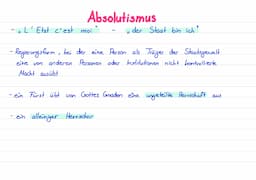 Absolutismus
- „L' État c'est moi" - „der Staat bin ich"
- Regierungsform, bei der eine Person als Träger der Staatsgewalt
eine von anderen Personen oder Institutionen nicht kontrollierte
Macht ausübt
- ein Fürst übt von Gottes Gnaden eine ungeteilte Herrschaft aus
- ein alleiniger Herrscher